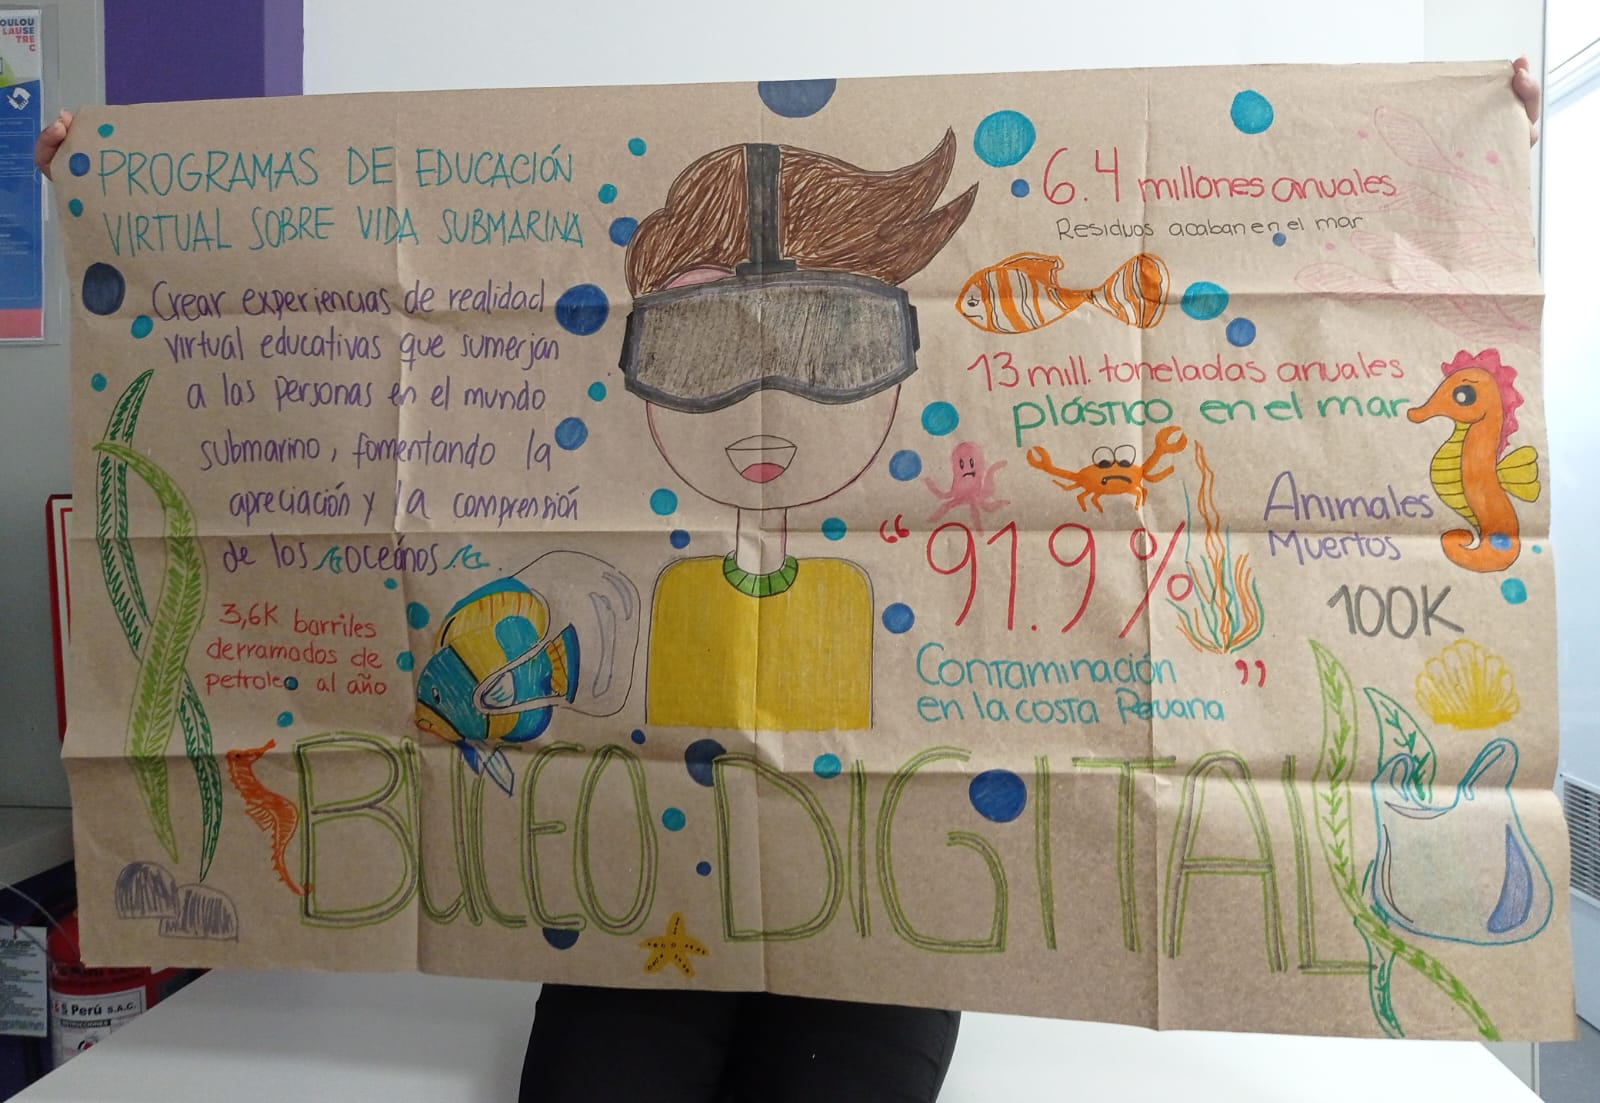 OULOU
LAUSE
TRE
C
PROGRAMAS DE EDUCACIÓN
VIRTUAL SOBRE VIDA SUBMARINA
Crear experiencias de realidad
virtual educativas que sumerjan
a las personas en el mundo
submarino, fomentando la
apreciación y la comprensión
de los oceános.
3,6K barriles
derramados de
petroleo al año
6.4 millones anuales
Residuos acaban en el mar
13 mill. toneladas anuales
plástico en el mar
Animales
Muertos
100K
“91.9%
Contaminación ”
en la costa Peruana
BUCEO DIGITAL
S Perú S.A.C.